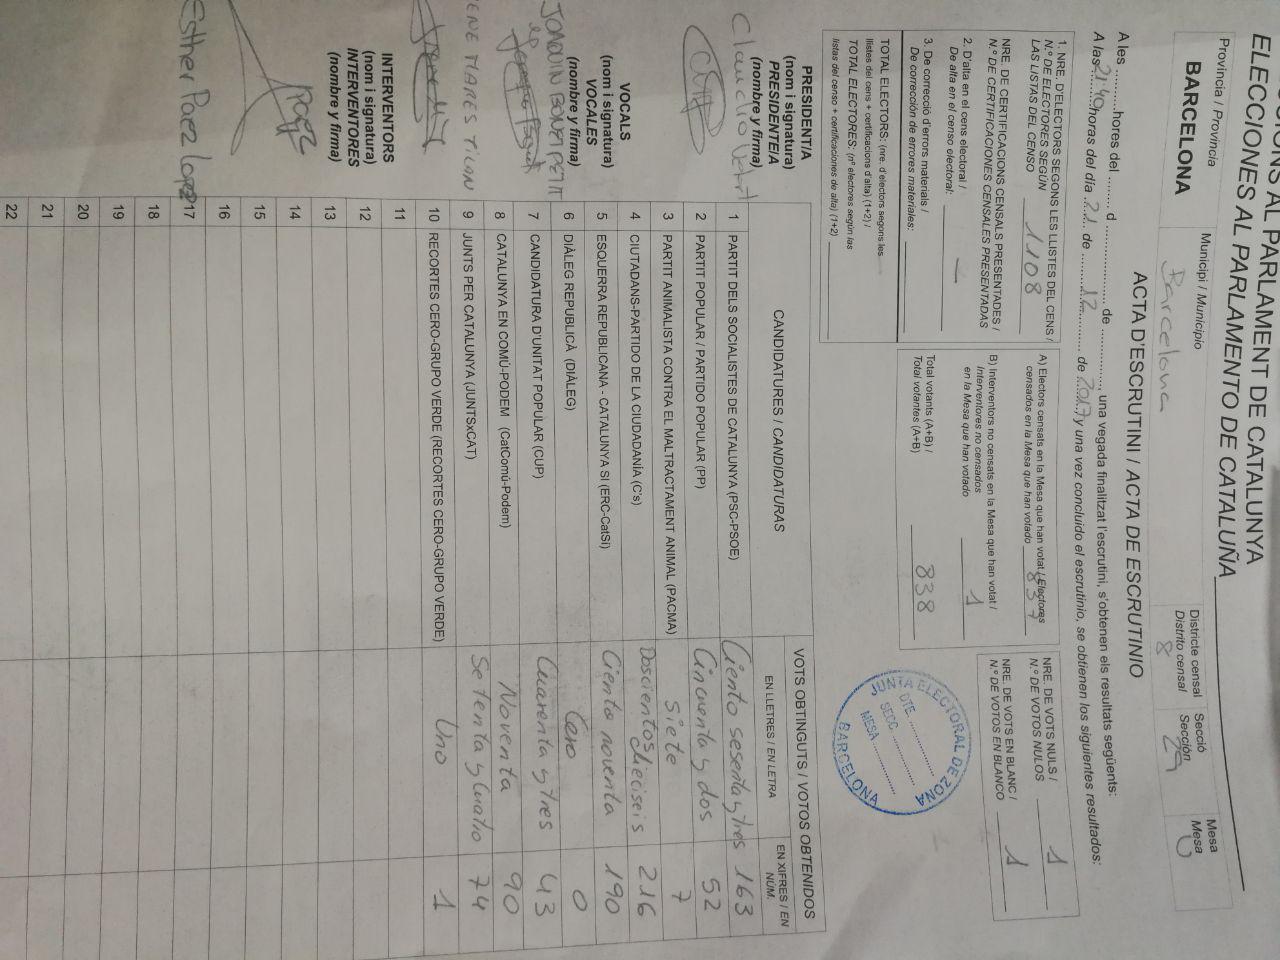 ELECCIONS AL PARLAMENT DE CATALUNYA
ELECCIONES AL PARLAMENTO DE CATALUÑA
Provincia / Provincia
BARCELONA
Municipi / Municipio
Barcelona
Districte censal
Distrito censal
8
Secció
Sección
29
Mesa
Mesa
U
ACTA D'ESCRUTINI / ACTA DE ESCRUTINIO
A les ..........hores del ........ d ................... de ..............., una vegada finalitzat l'escrutini, s'obtenen els resultats següents:
A las 21:40 horas del día 21 de 12 de 2017 y una vez concluido el escrutinio, se obtienen los siguientes resultados:
1. NRE. D'ELECTORS SEGONS LES LLISTES DEL CENS /
N.º DE ELECTORES SEGÚN
LAS LISTAS DEL CENSO 1108
NRE. DE CERTIFICACIONS CENSALS PRESENTADES /
N.º DE CERTIFICACIONES CENSALES PRESENTADAS
2. D'alta en el cens electoral /
De alta en el censo electoral: —
3. De correcció d'errors materials /
De corrección de errores materiales:
TOTAL ELECTORS: (nre. d'electors segons les
llistes del cens + certificacions d'alta) (1+2) /
TOTAL ELECTORES: (nº electores según las
listas del censo + certificaciones de alta) (1+2)
A) Electors censats en la Mesa que han votat / Electores
censados en la Mesa que han votado 837
B) Interventors no censats en la Mesa que han votat /
Interventores no censados
en la Mesa que han votado 1
Total votants (A+B) /
Total votantes (A+B) 838
NRE. DE VOTS NULS /
N.º DE VOTOS NULOS 1
NRE. DE VOTS EN BLANC /
N.º DE VOTOS EN BLANCO 1
JUNTA ELECTORAL DE ZONA
DTE. ...............
SECC. ...............
MESA ...............
BARCELONA
PRESIDENT/A
(nom i signatura)
PRESIDENTE/A
(nombre y firma)
Claudio
VOCALS
(nom i signatura)
VOCALES
(nombre y firma)
JOAQUIN BONET PETIT
MARES
INTERVENTORS
(nom i signatura)
INTERVENTORES
(nombre y firma)
Paez
Esther Paez Lopez
CANDIDATURES / CANDIDATURAS
VOTS OBTINGUTS / VOTOS OBTENIDOS
EN LLETRES / EN LETRA
EN XIFRES / EN NÚM.
1 PARTIT DELS SOCIALISTES DE CATALUNYA (PSC-PSOE) Ciento sesenta y tres 163
2 PARTIT POPULAR / PARTIDO POPULAR (PP) Cincuenta y dos 52
3 PARTIT ANIMALISTA CONTRA EL MALTRACTAMENT ANIMAL (PACMA) siete 7
4 CIUTADANS-PARTIDO DE LA CIUDADANÍA (C's) Doscientos dieciseis 216
5 ESQUERRA REPUBLICANA - CATALUNYA SI (ERC-CatSí) Ciento noventa 190
6 DIÀLEG REPUBLICÀ (DIÀLEG) Cero 0
7 CANDIDATURA D'UNITAT POPULAR (CUP) Cuarenta y tres 43
8 CATALUNYA EN COMÚ-PODEM (CatComú-Podem) Noventa 90
9 JUNTS PER CATALUNYA (JUNTSxCAT) Setenta y Cuatro 74
10 RECORTES CERO-GRUPO VERDE (RECORTES CERO-GRUPO VERDE) Uno 1
11
12
13
14
15
16
17
18
19
20
21
22